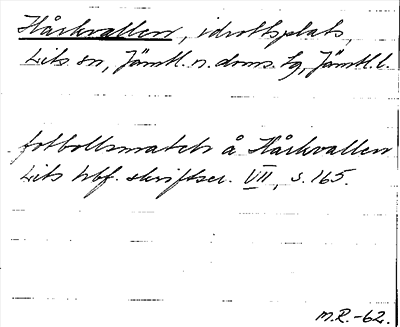 Hårkvallen, idrottsplats,
Lits sn, Jämtl. n. doms. tg, Jämtl. l.
fotbollsmatch å Hårkvallen
Lits hbf. skriftser. VII, s. 165.
M.R.-62.